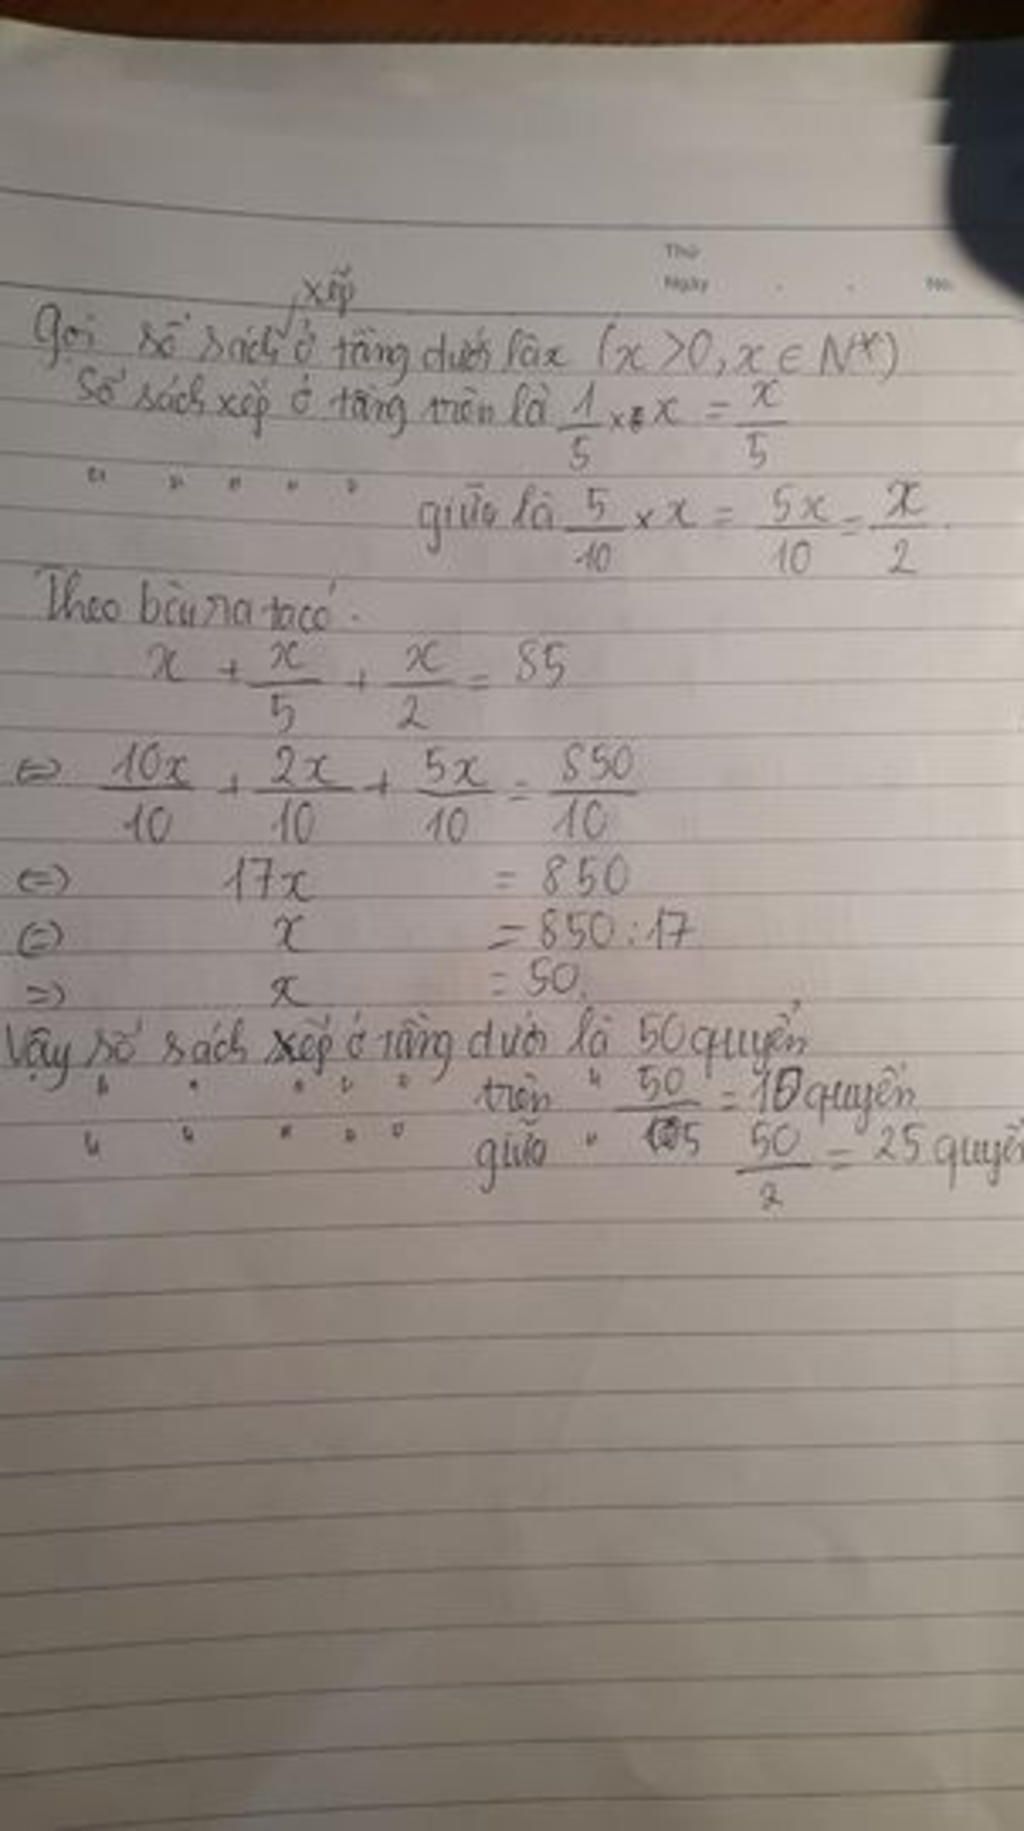 Thứ
Ngày . . No.
xếp
Gọi số sách ở tầng dưới là x (x > 0, x ∈ N*)
Số sách xếp ở tầng trên là 1/5 × x = x/5
" " " " " giữa là 5/10 × x = 5x/10 = x/2.
Theo bài ra ta có.
x + x/5 + x/2 = 85
⇔ 10x/10 + 2x/10 + 5x/10 = 850/10
⇔ 17x = 850
⇔ x = 850 : 17
⇒ x = 50.
Vậy số sách xếp ở tầng dưới là 50 quyển
" " " " " trên " 50/5 = 10 quyển
" " " " " giữa " 50/2 = 25 quyển